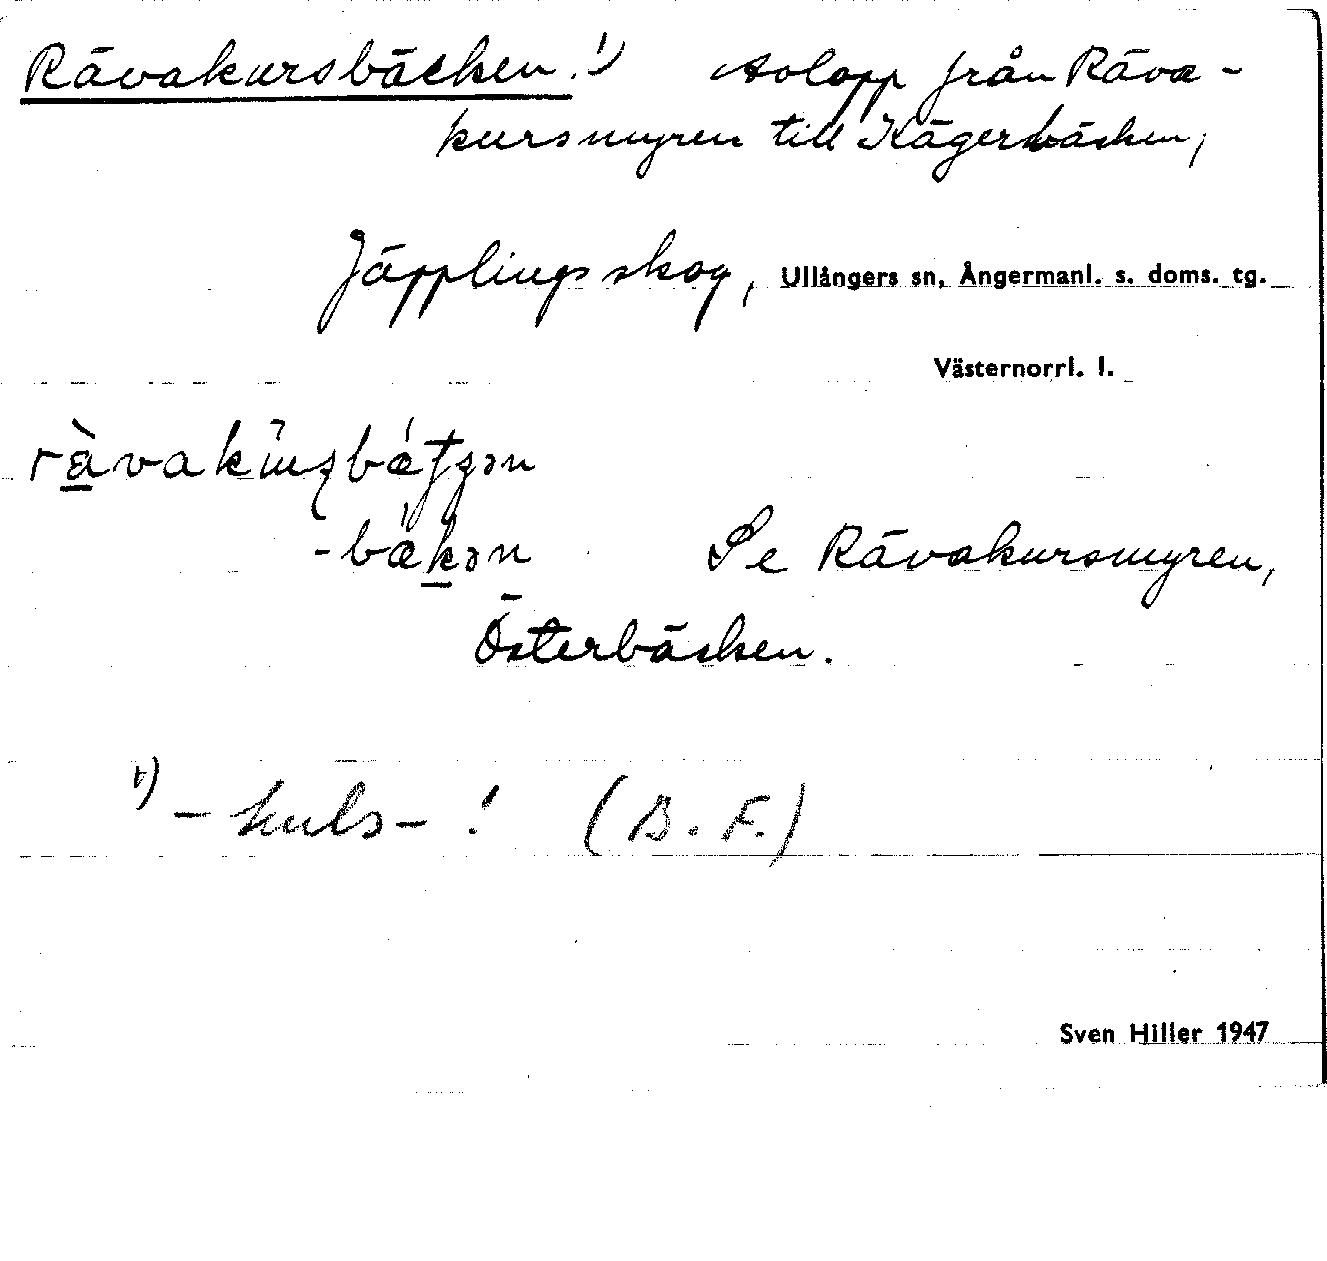 Rävakursbäcken.¹⁾ Avlopp från Räva-
kursmyren till Kägerbäcken,
Jäpplingsskog, Ullångers sn, Ångermanl. s. doms. tg.
Västernorrl. l.
Se Rävakursmyren,
Österbäcken.
¹⁾ -kuls-! (B.F.)
Sven Hiller 1947